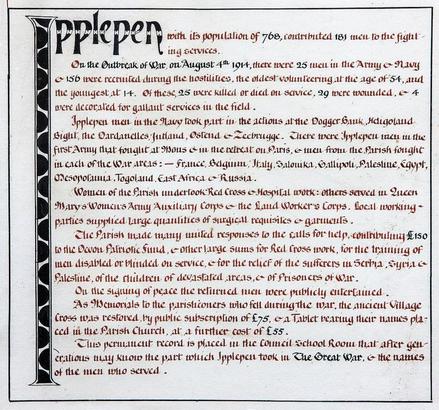 Ipplepen with its population of 768, contributed 181 men to the fight-
ing services.
On the Outbreak of War, on August 4th 1914, there were 25 men in the Army & Navy
& 156 were recruited during the hostilities, the oldest volunteering at the age of 54, and
the youngest at 14. Of these, 25 were killed or died on service, 29 were wounded, & 4
were decorated for gallant services in the field.
Ipplepen men in the Navy took part in the actions at the Dogger Bank, Heligoland
Bight, the Dardanelles, Jutland, Ostend & Zeebrugge. There were Ipplepen men in the
first Army that fought at Mons & in the retreat on Paris, & men from the Parish fought
in each of the War areas: — France, Belgium, Italy, Salonika, Gallipoli, Palestine, Egypt,
Mesopotamia, Togoland, East Africa & Russia.
Women of the Parish undertook Red Cross & Hospital work: others served in Queen
Mary's Women's Army Auxiliary Corps & the Land Worker's Corps. Local working-
parties supplied large quantities of surgical requisites & garments.
The Parish made many united responses to the calls for help, contributing £150
to the Devon Patriotic Fund, & other large sums for Red Cross work, for the training of
men disabled or blinded on service, & for the relief of the sufferers in Serbia, Syria &
Palestine, of the children of devastated areas, & of Prisoners of War.
On the signing of peace the returned men were publicly entertained.
As Memorials to the parishioners who fell during the war, the ancient Village
Cross was restored, by public subscription of £75, & a Tablet bearing their names pla-
ced in the Parish Church, at a further cost of £55.
This permanent record is placed in the Council School Room that after gen-
erations may know the part which Ipplepen took in The Great War, & the names
of the men who served.